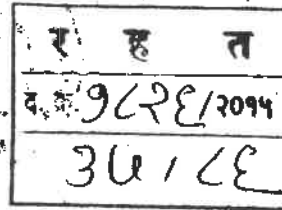 र ह त
द. क्र. १८२६/२०१५
३५/८६